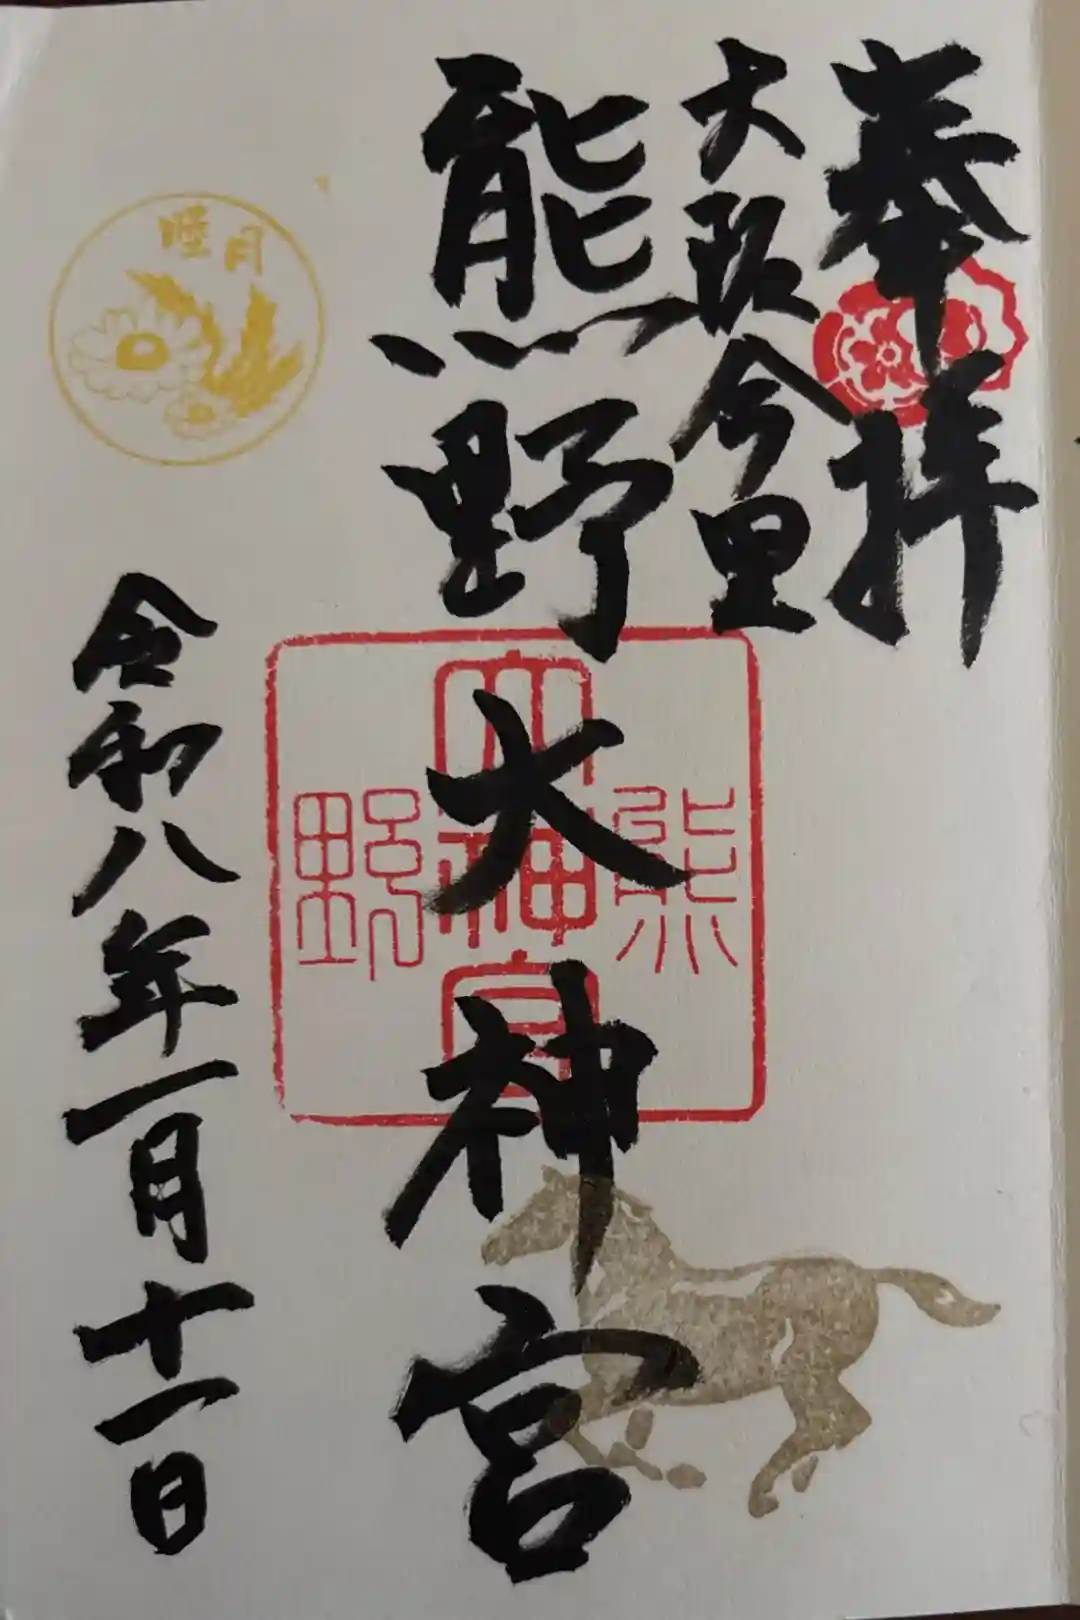 奉拝
大阪今里
熊野大神宮
熊野大神宮
睦月
令和八年一月十一日